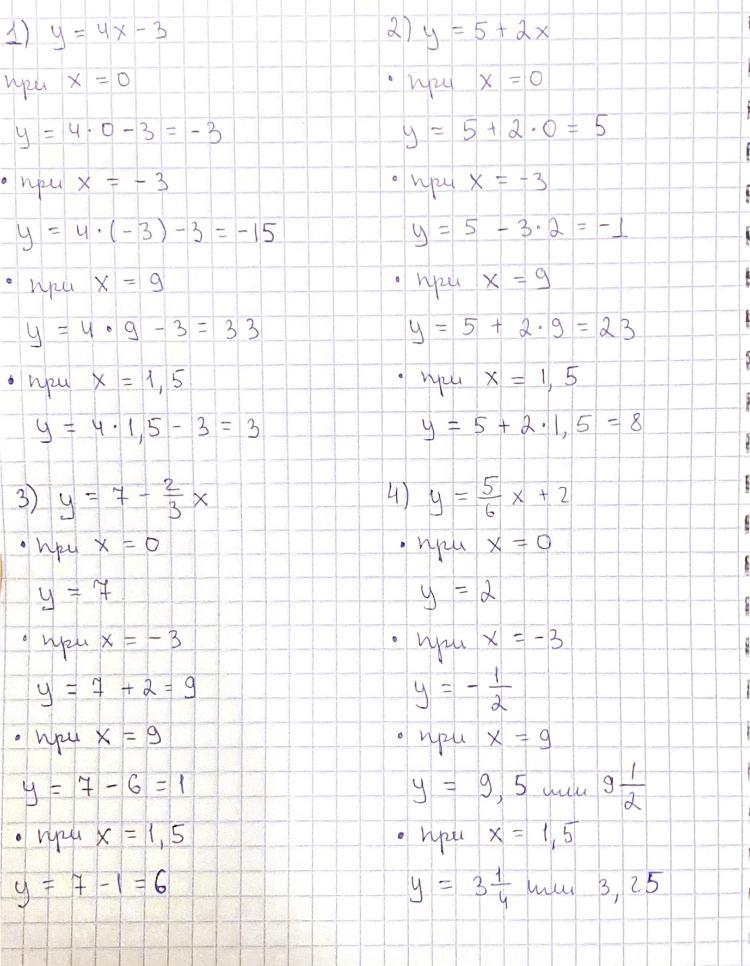 1) y = 4x - 3
при x = 0
y = 4 · 0 - 3 = -3
· при x = -3
y = 4 · (-3) - 3 = -15
· при x = 9
y = 4 · 9 - 3 = 33
· при x = 1,5
y = 4 · 1,5 - 3 = 3
2) y = 5 + 2x
· при x = 0
y = 5 + 2 · 0 = 5
· при x = -3
y = 5 - 3 · 2 = -1
· при x = 9
y = 5 + 2 · 9 = 23
· при x = 1,5
y = 5 + 2 · 1,5 = 8
3) y = 7 - 2/3 x
· при x = 0
y = 7
· при x = -3
y = 7 + 2 = 9
· при x = 9
y = 7 - 6 = 1
· при x = 1,5
y = 7 - 1 = 6
4) y = 5/6 x + 2
· при x = 0
y = 2
· при x = -3
y = - 1/2
· при x = 9
y = 9,5 или 9 1/2
· при x = 1,5
y = 3 1/4 или 3,25